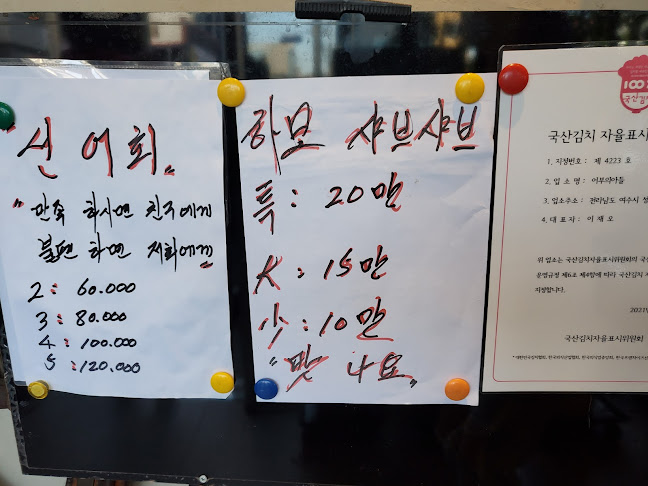 선어회
"만족 하시면 친구에게
불편 하면 저희에게"
2 : 60.000
3 : 80.000
4 : 100.000
5 : 120.000
하모 샤브샤브
특 : 20만
大 : 15만
小 : 10만
"맛 나요"
100%
국산김치
국산김치 자율표시
1. 지정번호 : 제 4223 호
2. 업 소 명 : 어부의아들
3. 업소주소 : 전라남도 여수시
4. 대 표 자 : 이 재 오
위 업소는 국산김치자율표시위원회의
운영규정 제6조 제4항에 따라 국산김치
지정합니다.
2021
국산김치자율표시위원회